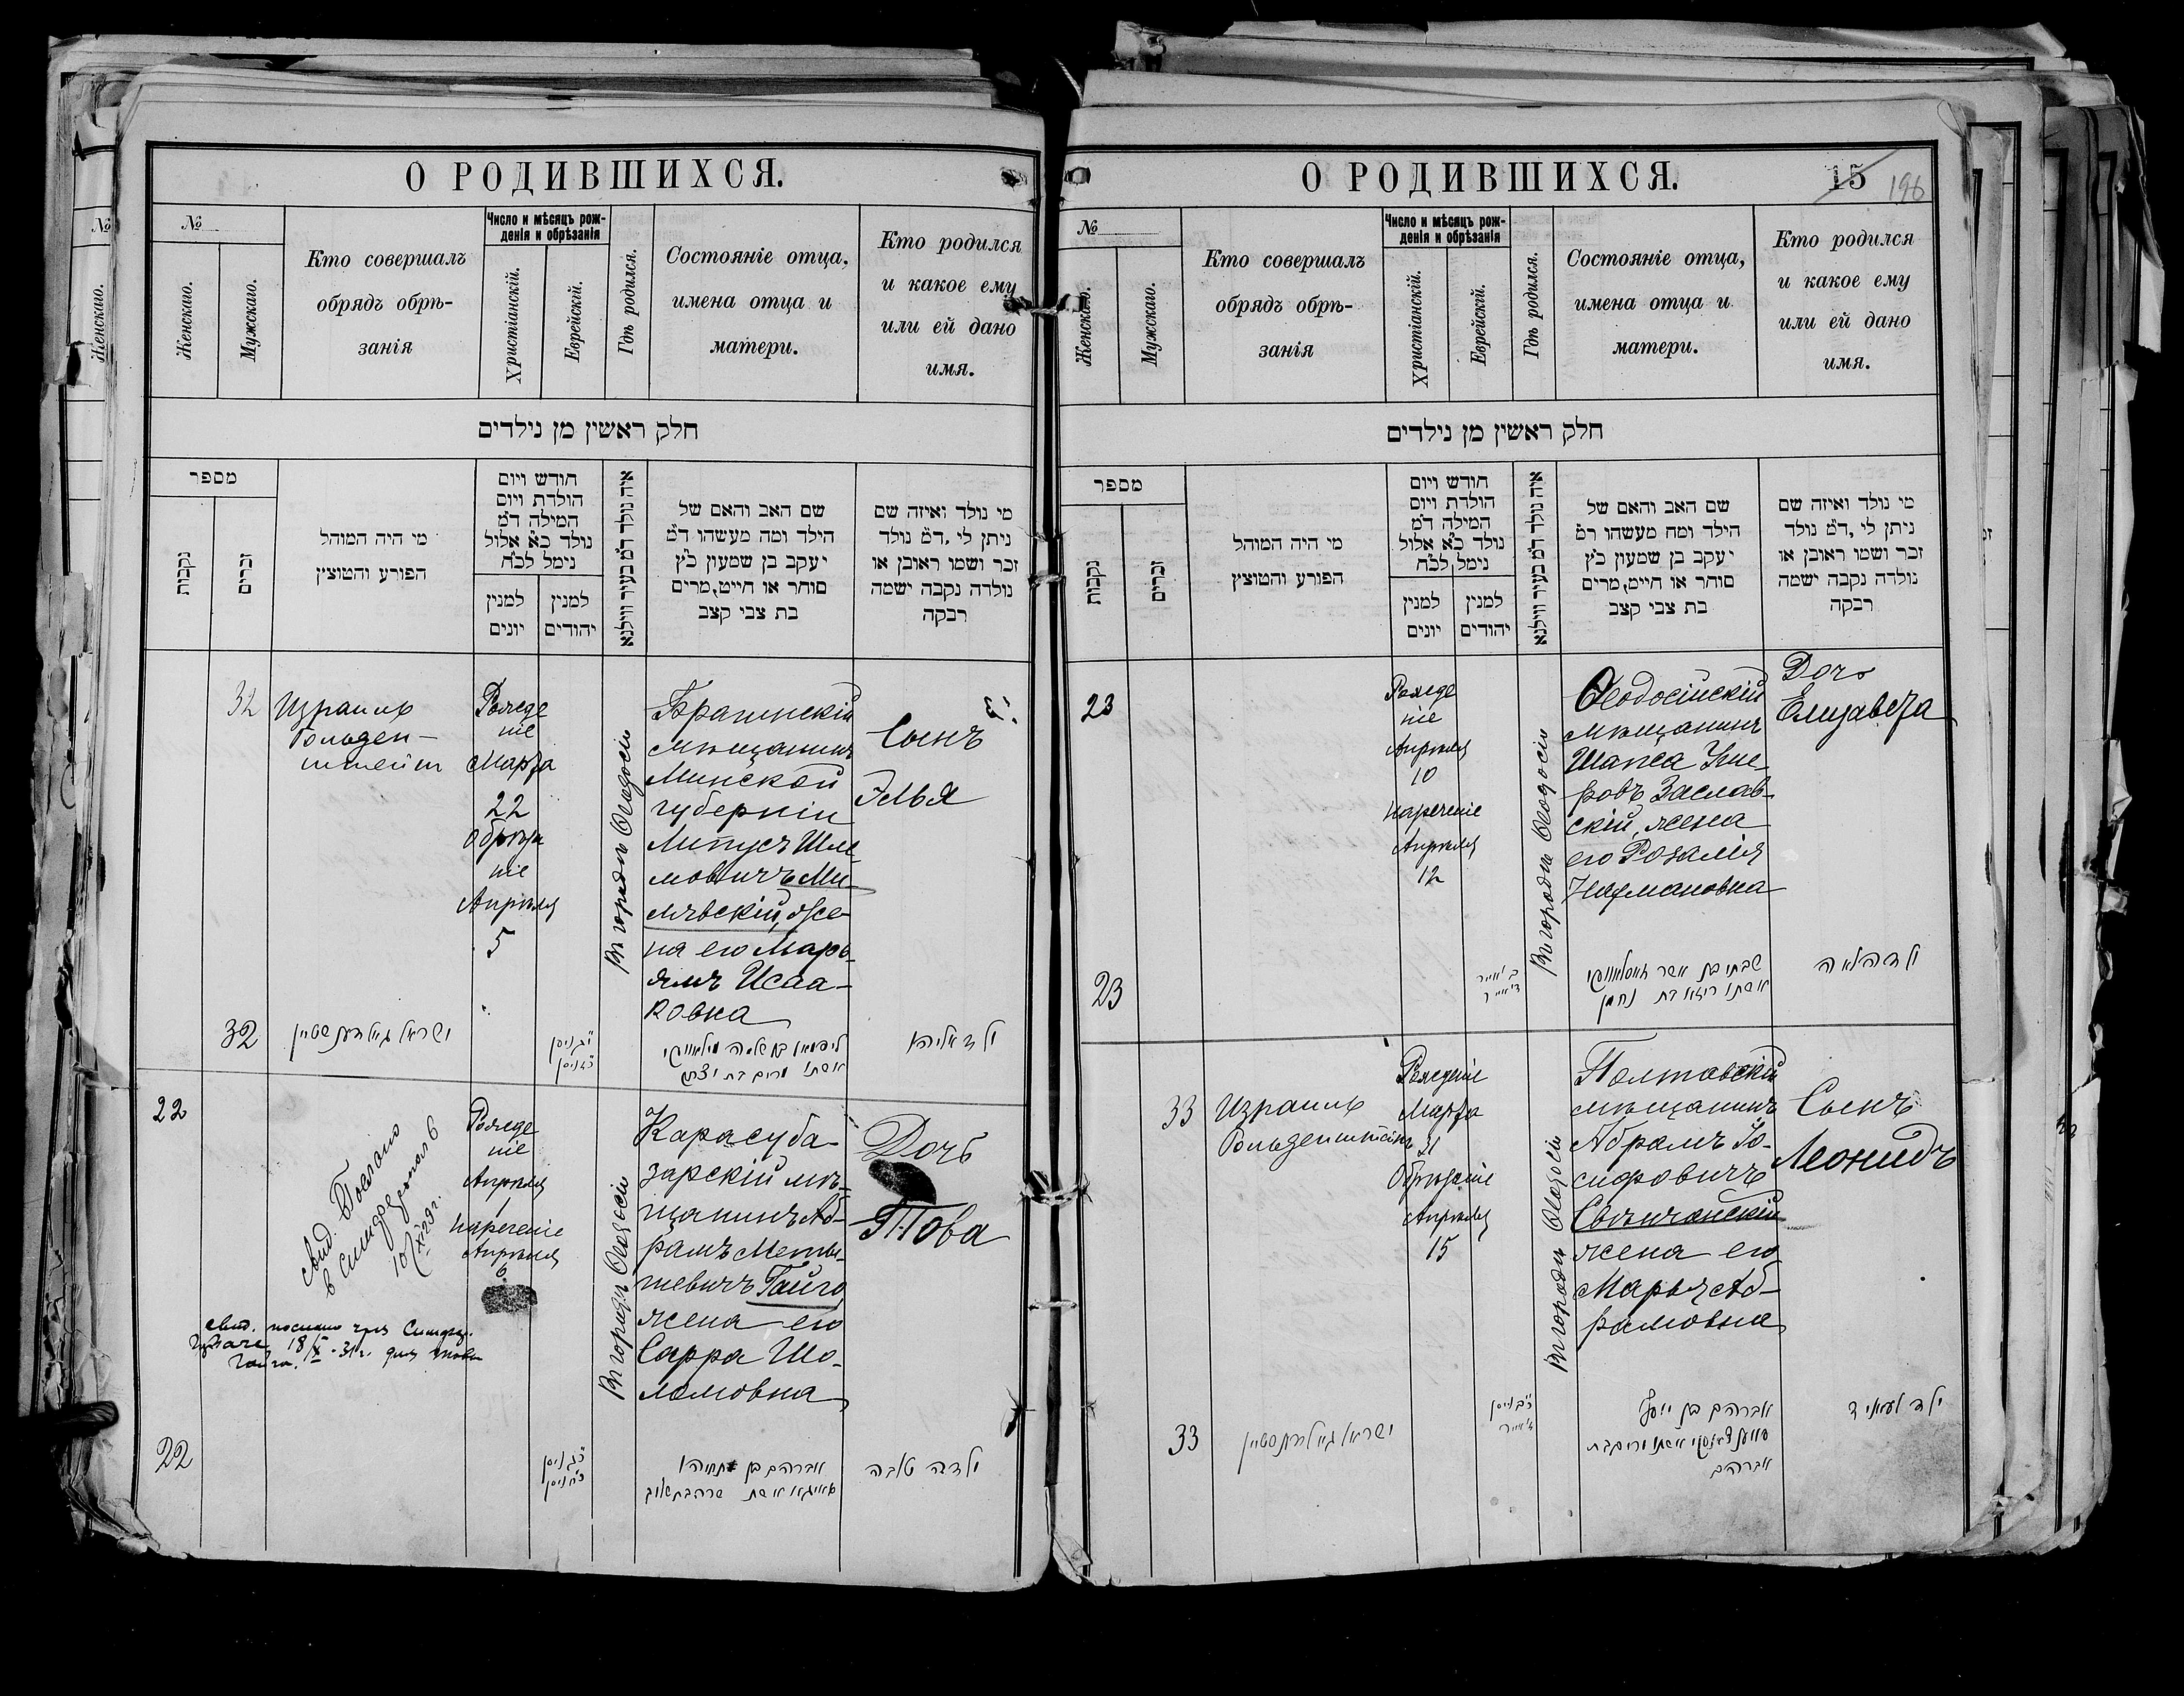 О РОДИВШИХСЯ.
№
Женскаго.
Мужскаго.
Кто совершалъ
обрядъ обрѣ-
занія
Число и мѣсяцъ рож-
денія и обрѣзанія
Христіанскій.
Еврейскій.
Гдѣ родился.
Состояніе отца,
имена отца и
матери.
Кто родился
и какое ему
или ей дано
имя.
חלק ראשין מן נילדים
מספר
נקבות
זכרים
מי היה המוהל
הפורע והמוצץ
חודש ויום
הולדת ויום
המילה ד״מ
נולד כ״א אלול
נימל לכ״ח
למנין
יונים
למנין
יהודים
איה נולד ד״מ בעיר ווילנא
שם האב והאם של
הילד ומה מעשהו ד״מ
יעקב בן שמעון כ״ץ
סוחר או חייט, מרים
בת צבי קצב
מי נולד ואיזה שם
ניתן לי, ד״מ נולד
זכר ושמו ראובן או
נולדה נקבה ישמה
רבקה
32
Израиль
Гольден-
штейн
Рожде
ніе
Марта
22
Обрѣза
ніе
Апрѣля
5
Въ городѣ Ѳеодосіи
мѣщанинъ
Минской
губерніи
Липусъ Шле-
мовичъ Ми-
лявскій, же-
на его Марь-
ямъ Исаа-
ковна
Сынъ
Элья
32
ישראל גאלדענשטיין
ילד אליהו
22
Рожде
ніе
Апрѣля
1
Нареченіе
Апрѣля
6
Въ городѣ Ѳеодосіи
Карасуба-
зарскій мѣ-
щанинъ Аб-
рамъ Меты-
шевичъ Гайго,
жена его
Сарра Шо-
ломовна
Дочь
Това
свид. Послано
в Симфер
свид. послано чрез Симфер.
18/X-31 г. для Товы
Гайго.
22
כ״ג ניסן
כ״ח ניסן
ילדה טובה
О РОДИВШИХСЯ.
15
196
№
Женскаго.
Мужскаго.
Кто совершалъ
обрядъ обрѣ-
занія
Число и мѣсяцъ рож-
денія и обрѣзанія
Христіанскій.
Еврейскій.
Гдѣ родился.
Состояніе отца,
имена отца и
матери.
Кто родился
и какое ему
или ей дано
имя.
חלק ראשין מן נילדים
מספר
נקבות
זכרים
מי היה המוהל
הפורע והמוצץ
חודש ויום
הולדת ויום
המילה ד״מ
נולד כ״א אלול
נימל לכ״ח
למנין
יונים
למנין
יהודים
איה נולד ד״מ בעיר ווילנא
שם האב והאם של
הילד ומה מעשהו ד״מ
יעקב בן שמעון כ״ץ
סוחר או חייט, מרים
בת צבי קצב
מי נולד ואיזה שם
ניתן לי, ד״מ נולד
זכר ושמו ראובן או
נולדה נקבה ישמה
רבקה
23
Рожде
ніе
Апрѣля
10
Нареченіе
Апрѣля
12
Въ городѣ Ѳеодосіи
Ѳеодосійскій
мѣщанинъ
Шапса Уше-
ровъ Заслав-
скій, жена
его Розалія
Нахмановна
Дочь
Елизавета
23
שבתי בן אשר זאסלאווסקי
אשתו ריזא בת נחמן
ילדה לאה
33
Израиль
Гольденштейнъ
Рожденіе
Марта
31
Обрѣзаніе
Апрѣля
15
Въ городѣ Ѳеодосіи
Полтавскій
мѣщанинъ
Абрамъ Іо-
сифовичъ
Свѣчанскій
жена его
Марья Аб-
рамовна
Сынъ
Леонидъ
33
ישראל גאלדענשטיין
אברהם בן יוסף
אברהם